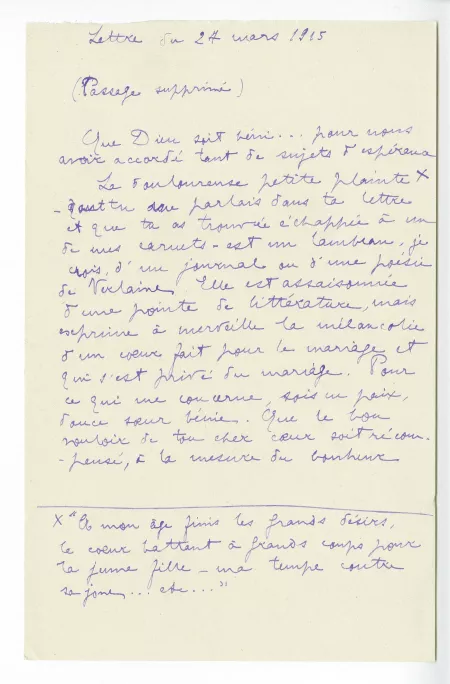 Lettre du 27 mars 1915
(Passage supprimé)
Que Dieu soit béni... pour nous
avoir accordé tant de sujets d'espérance
La douloureuse petite plainte X
- dont tu me parlais dans ta lettre
et que tu as trouvée échappée à un
de mes carnets - est un lambeau, je
crois, d'un journal ou d'une poésie
de Verlaine. Elle est assaisonnée
d'une pointe de littérature, mais
exprime à merveille la mélancolie
d'un cœur fait pour le mariage et
qui s'est privé du mariage. Pour
ce qui me concerne, sois en paix,
douce sœur bénie. Que le bon
vouloir de ton cher cœur soit récom-
-pensé, à la mesure du bonheur
X "A mon âge finis les grands désirs,
le cœur battant à grands coups pour
la jeune fille - ma tempe contre
sa joue... etc..."